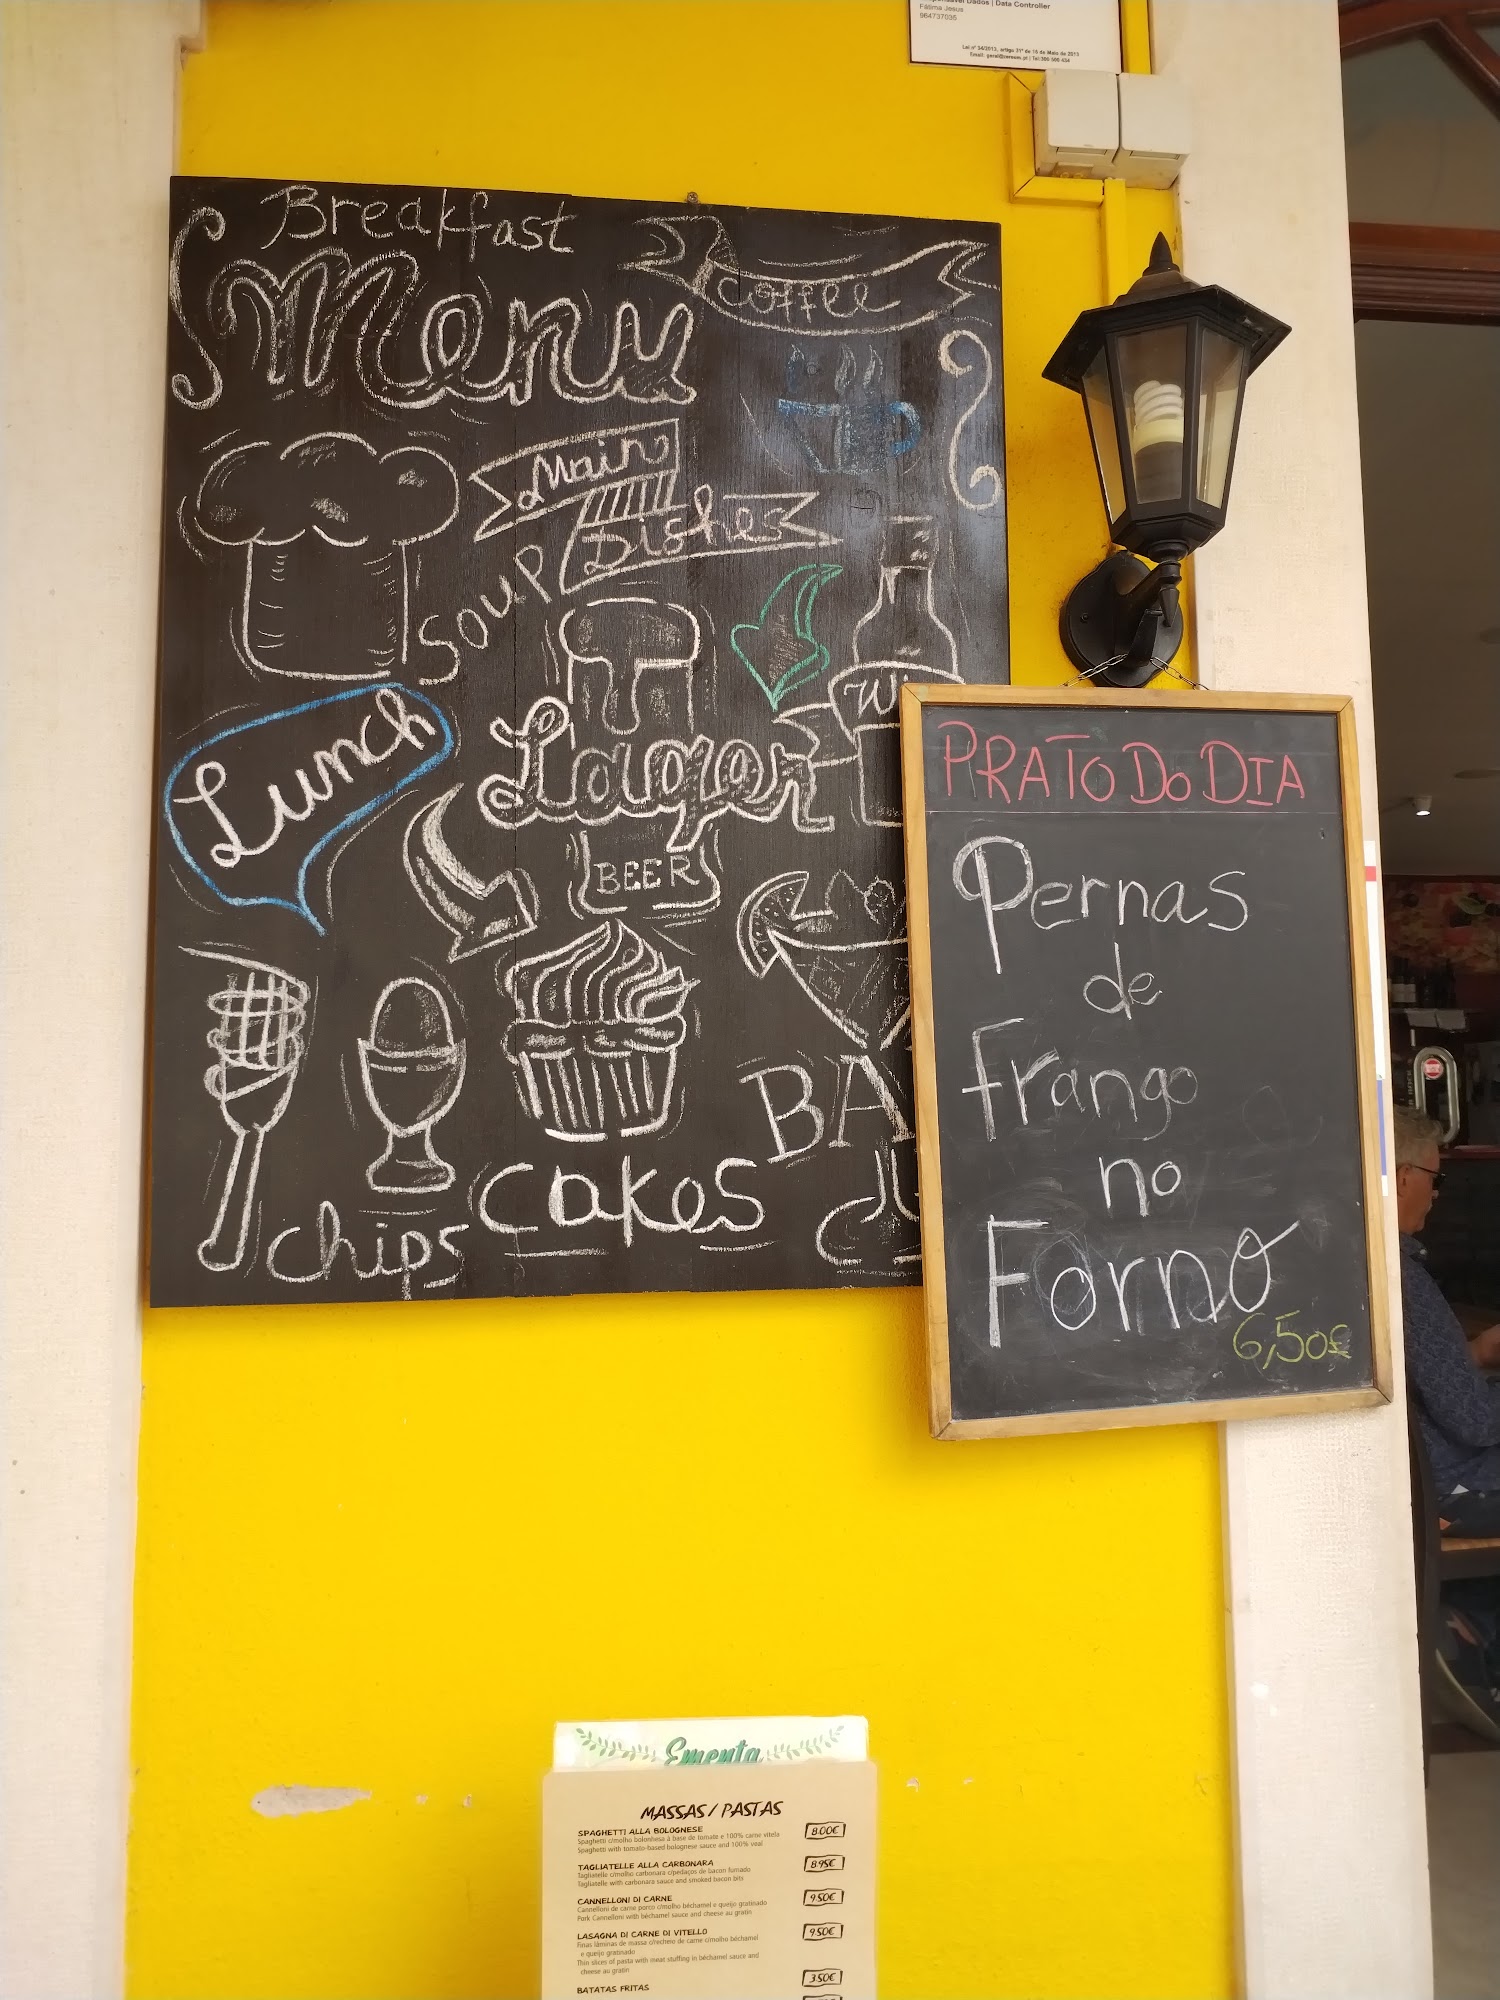 Responsável Dados | Data Controller
Fátima Jesus
964737035
Lei nº 34/2013, artigo 31º de 16 de Maio de 2013
Breakfast
Menu
Coffee
Main
Dishes
Soup
Lunch
Lager
BEER
Chips
Cakes
PRATO DO DIA
Pernas
de
frango
no
Forno
6,50€
Ementa
MASSAS / PASTAS
SPAGHETTI ALLA BOLOGNESE 8.00€
Spaghetti c/molho bolonhesa à base de tomate e 100% carne vitela
Spaghetti with tomato-based bolognese sauce and 100% veal
TAGLIATELLE ALLA CARBONARA 8.95€
Tagliatelle c/molho carbonara c/pedaços de bacon fumado
Tagliatelle with carbonara sauce and smoked bacon bits
CANNELLONI DI CARNE 9.50€
Cannelloni de carne porco c/molho béchamel e queijo gratinado
Pork Cannelloni with béchamel sauce and cheese au gratin
LASAGNA DI CARNE DI VITELLO 9.50€
Finas lâminas de massa c/recheio de carne c/molho béchamel
e queijo gratinado
Thin slices of pasta with meat stuffing in béchamel sauce and
cheese au gratin
BATATAS FRITAS 3.50€